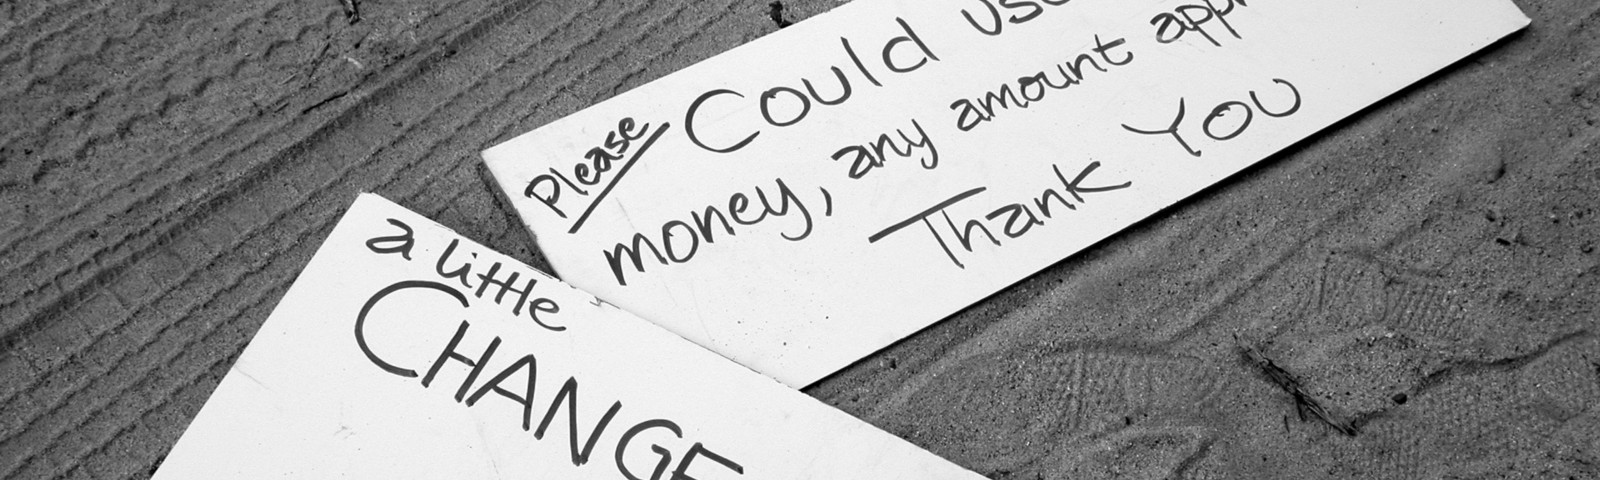 Please Could
money, any amount
Thank You
a little
CHANGE